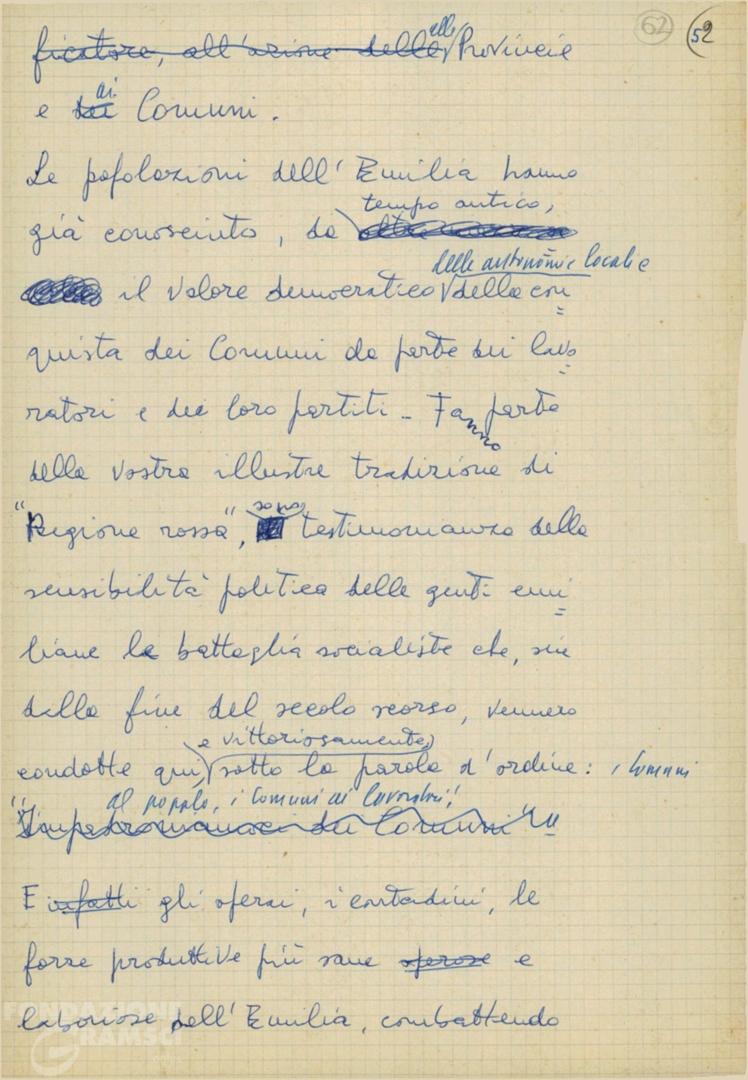 62 52
alle
ficatore, all'azione delle Provincie
ai
e dei Comuni.
Le popolazioni dell'Emilia hanno
tempo antico,
già conosciuto, da
delle autonomie locali e
il valore democratico della con
quista dei Comuni da parte dei lavo
ratori e dei loro partiti - Fanno parte
della vostra illustre tradizione di
sono
"Regione rossa", testimonianza della
sensibilità politica delle genti emi
liane le battaglie socialiste che, sin
dalla fine del secolo scorso, vennero
e vittoriosamente,
condotte qui, sotto la parola d'ordine: i Comuni
al popolo, i Comuni ai lavoratori!
"Impadroniamoci dei Comuni"!"
E infatti gli operai, i contadini, le
forze produttive più sane operose e
laboriose dell'Emilia, combattendo
FONDAZIONE
GRAMSCI